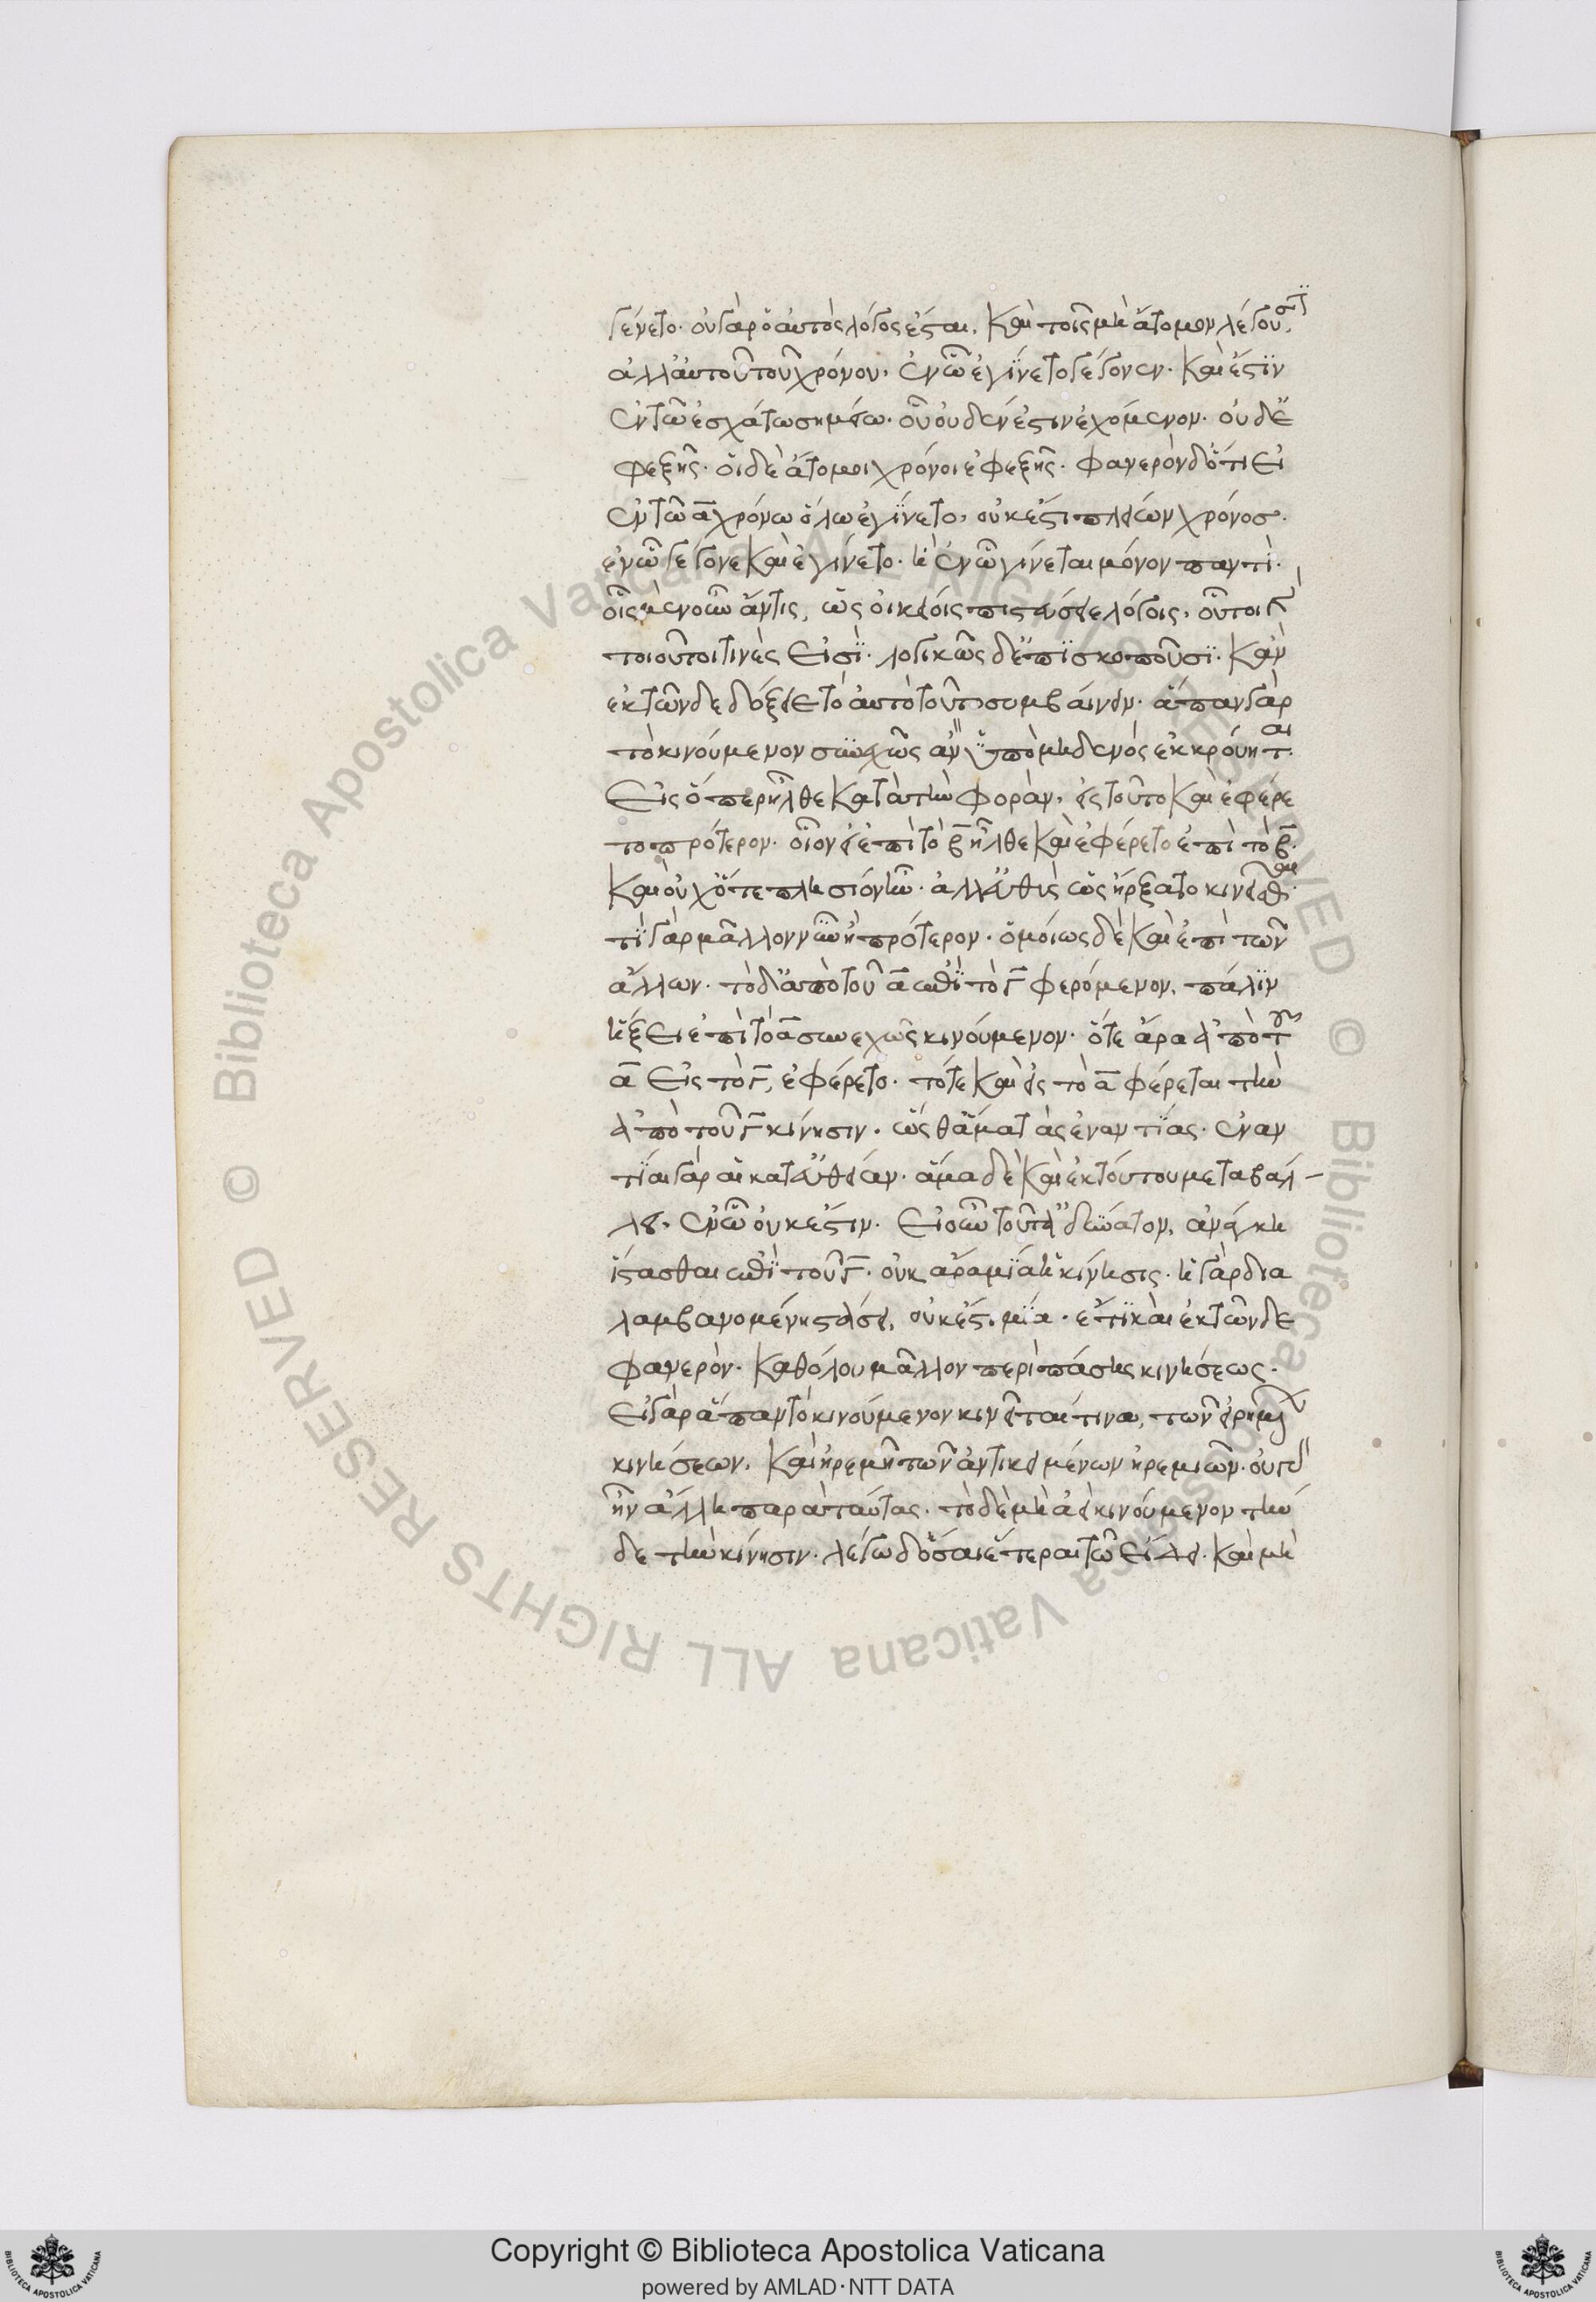 γένετο· οὐ γὰρ ὁ αὐτὸς λόγος ἔσται, καὶ τοῖς μὴ ἄτομον λέγουσϊ
ἀλλ' αὐτοῦ τοῦ χρόνου, ἐν ᾧ ἐγίνετο γέγονεν· καὶ ἔστϊν
ἐν τῷ ἐσχάτω σημείω· οὗ οὐδέν ἐστιν ἐχόμενον· οὐδ' ἐ
φεξῆς· οἱ δὲ ἄτομοι χρόνοι ἐφεξῆς· φανερὸν δ' ὅτι εἰ
ἐν τῷ α χρόνω ὅλω ἐγίνετο, οὐκ ἔστι πλείων χρόνοσ·
ἐν ᾧ γέγονε καὶ ἐγίνετο· ἢ ἐν ᾧ γίνεται μόνον παντί·
οἷς μὲν οὖν ἄν τις, ὡς οἰκείοις πιστεύσειε λόγοις, οὗτοι κ
τοιοῦτοι τινὲς εἰσϊ· λογικῶς δ' ἐπϊσκοποῦσϊ· κἀν
ἐκ τῶνδε δόξειε τὸ αὐτὸ τοῦτο συμβαίνειν· ἅπαν γὰρ
τὸ κινούμενον συνεχῶς ἂν ὑπὸ μηδενὸς ἐκκρούηται·
εἰς ὅπερ ἦλθε κατὰ τὴν φοράν, εἰς τοῦτο καὶ ἐφέρε
το πρότερον· οἷον εἰ ἐπὶ τὸ β ἦλθε καὶ ἐφέρετο ἐπὶ τὸ β·
καὶ οὐχ ὅτε πλησίον ἦν· ἀλλ' εὐθὺς ὡς ἤρξατο κινεῖσθαι·
τί γὰρ μᾶλλον νῦν ἢ πρότερον· ὁμοίως δὲ καὶ ἐπὶ τῶν
ἄλλων· τὸ δ' ἀπὸ τοῦ α ἐπὶ τὸ Γ φερόμενον, πάλϊν
ἥξει ἐπὶ τὸ α συνεχῶς κινούμενον· ὅτε ἄρα ἀπὸ τοῦ
α εἰς τὸ Γ, ἐφέρετο· τότε καὶ εἰς τὸ α φέρεται τὴν
ἀπὸ τοῦ Γ κίνησιν· ὥσθ' ἅμα τὰς ἐναντίας· ἐναν
τίαι γὰρ αἱ κατ' εὐθεῖαν· ἅμα δὲ καὶ ἐκ τούτου μεταβάλ-
λει, ἐν ᾧ οὐκ ἔστιν· εἰ οὖν τοῦτ' ἀδύνατον, ἀνάγκη
ἵστασθαι ἐπὶ τοῦ Γ· οὐκ ἄρα μία ἡ κίνησις· ἡ γὰρ δια
λαμβανομένη στάσει, οὐκ ἔστι μία· ἔτϊ καὶ ἐκ τῶνδε
φανερόν· καθόλου μᾶλλον περὶ πάσης κινήσεως·
εἰ γὰρ ἅπαν τὸ κινούμενον κινεῖται τινα, τῶν εἰρημένων
κινήσεων, καὶ ἠρεμεῖ τῶν ἀντικειμένων ἠρεμιῶν· οὐ γὰρ
ἦν ἄλλη παρὰ ταύτας· τὸ δὲ μὴ ἀεὶ κινούμενον τήν
δε τὴν κίνησιν· λέγω δ' ὅσαι ἕτεραι τῷ εἴδει· καὶ μὴ